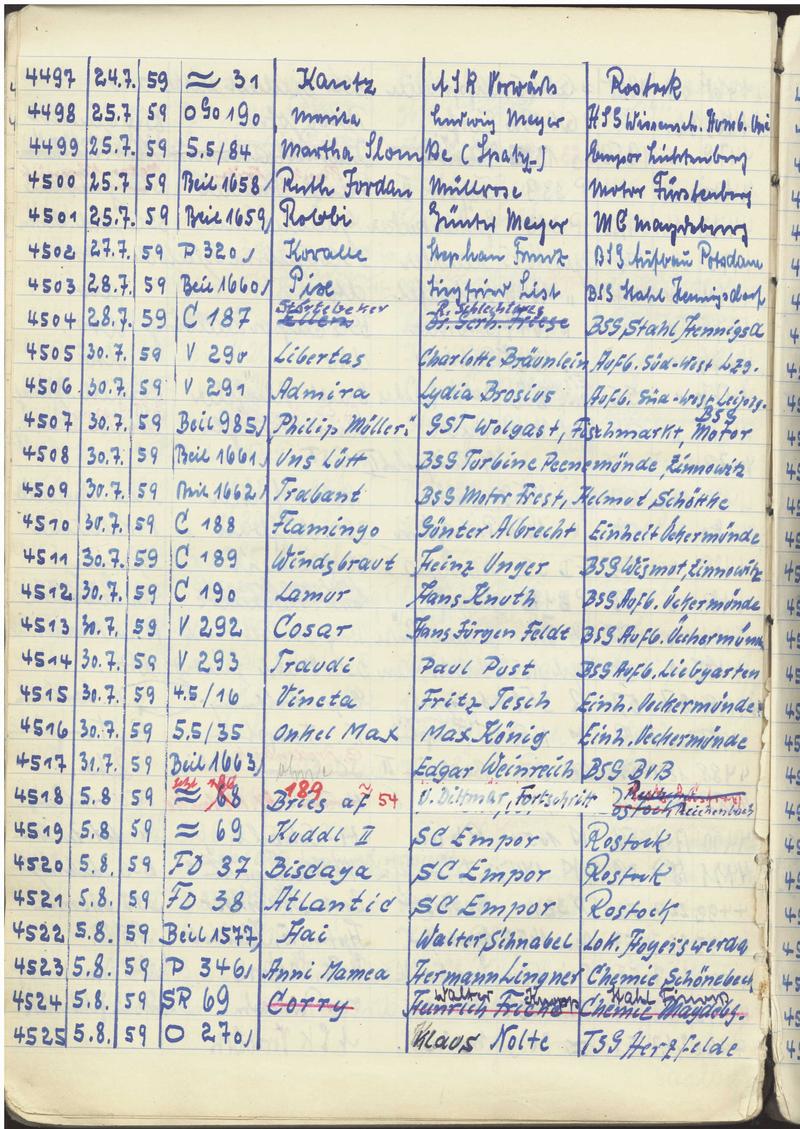 4497 24.7. 59 ≈ 31 Kautz ASK Vorwärts Rostock
4498 25.7 59 O 90 190 Monika Ludwig Meyer HSG Wissensch. Humb. Uni
4499 25.7. 59 5.5/84 Martha (Spatz) Empor Lichtenberg
4500 25.7 59 Beil 1658/ Ruth Jordan Müllrose Motor Fürstenberg
4501 25.7. 59 Beil 1659/ Robbi Günter Meyer MC Magdeburg
4502 27.7. 59 P 320/ Koralle Stephan BSG Aufbau Potsdam
4503 28.7. 59 Beil 1660/ Pise Siegfried List BSG Stahl Hennigsdorf
4504 28.7. 59 C 187 Störtebeker R. BSG Stahl Hennigsd
4505 30.7. 59 V 290 Libertas Charlotte Bräunlein Aufb. Süd-West Lzg.
4506 30.7. 59 V 291 Admira Lydia Brosius Aufb. Süd-West Leipzg.
4507 30.7. 59 Beil 985/ "Philip Müller" GST Wolgast, Fischmarkt, BSG Motor
4508 30.7. 59 Beil 1661/ Uns Lütt BSG Turbine Peenemünde, Zinnowitz
4509 30.7. 59 Beil 1662/ Trabant BSG Motor Frest, Helmut Schötthe
4510 30.7. 59 C 188 Flamingo Günter Albrecht Einheit Ückermünde
4511 30.7. 59 C 189 Windsbraut Heinz Unger BSG Wismut, Zinnowitz
4512 30.7. 59 C 190 Lamur Hans Knuth BSG Aufb. Ückermünde
4513 30.7. 59 V 292 Cosar Hans Jürgen Feldt BSG Aufb. Ückermünde
4514 30.7. 59 V 293 Traudi Paul Pust BSG Aufb. Liebgarten
4515 30.7. 59 4.5/16 Vineta Fritz Tesch Einh. Ueckermünde
4516 30.7. 59 5.5/35 Onkel Max Max König Einh. Ueckermünde
4517 31.7. 59 Beil 1663/ ohne Edgar Weinreich BSG BVB
4518 5.8 59 ≈ 68 189 Bries 54 U. Dittmar, Fortschritt Reichenbach
4519 5.8. 59 ≈ 69 Kuddl II SC Empor Rostock
4520 5.8. 59 FD 37 Biscaya SC Empor Rostock
4521 5.8. 59 FD 38 Atlantic SC Empor Rostock
4522 5.8. 59 Beil 1577/ Hai Walter Schnabel Lok. Hoyerswerda
4523 5.8. 59 P 346/ Anni Mamea Hermann Lingner Chemie Schönebeck
4524 5.8. 59 SR 69 Corry Walter Heinrich Stahl Chemie Magdebg.
4525 5.8. 59 O 270/ Klaus Nolte TSG Herzfelde